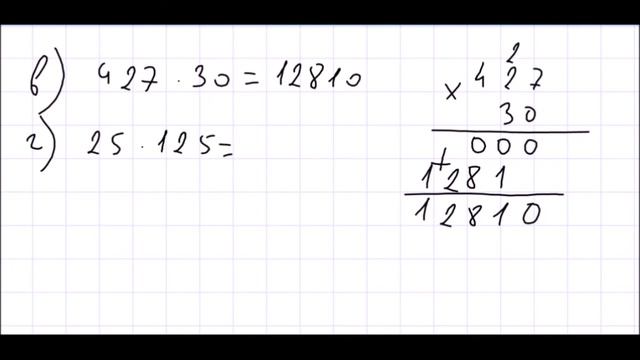 в) 427 · 30 = 12810
г) 25 · 125 =
2
× 427
30
000
+
1281
12810